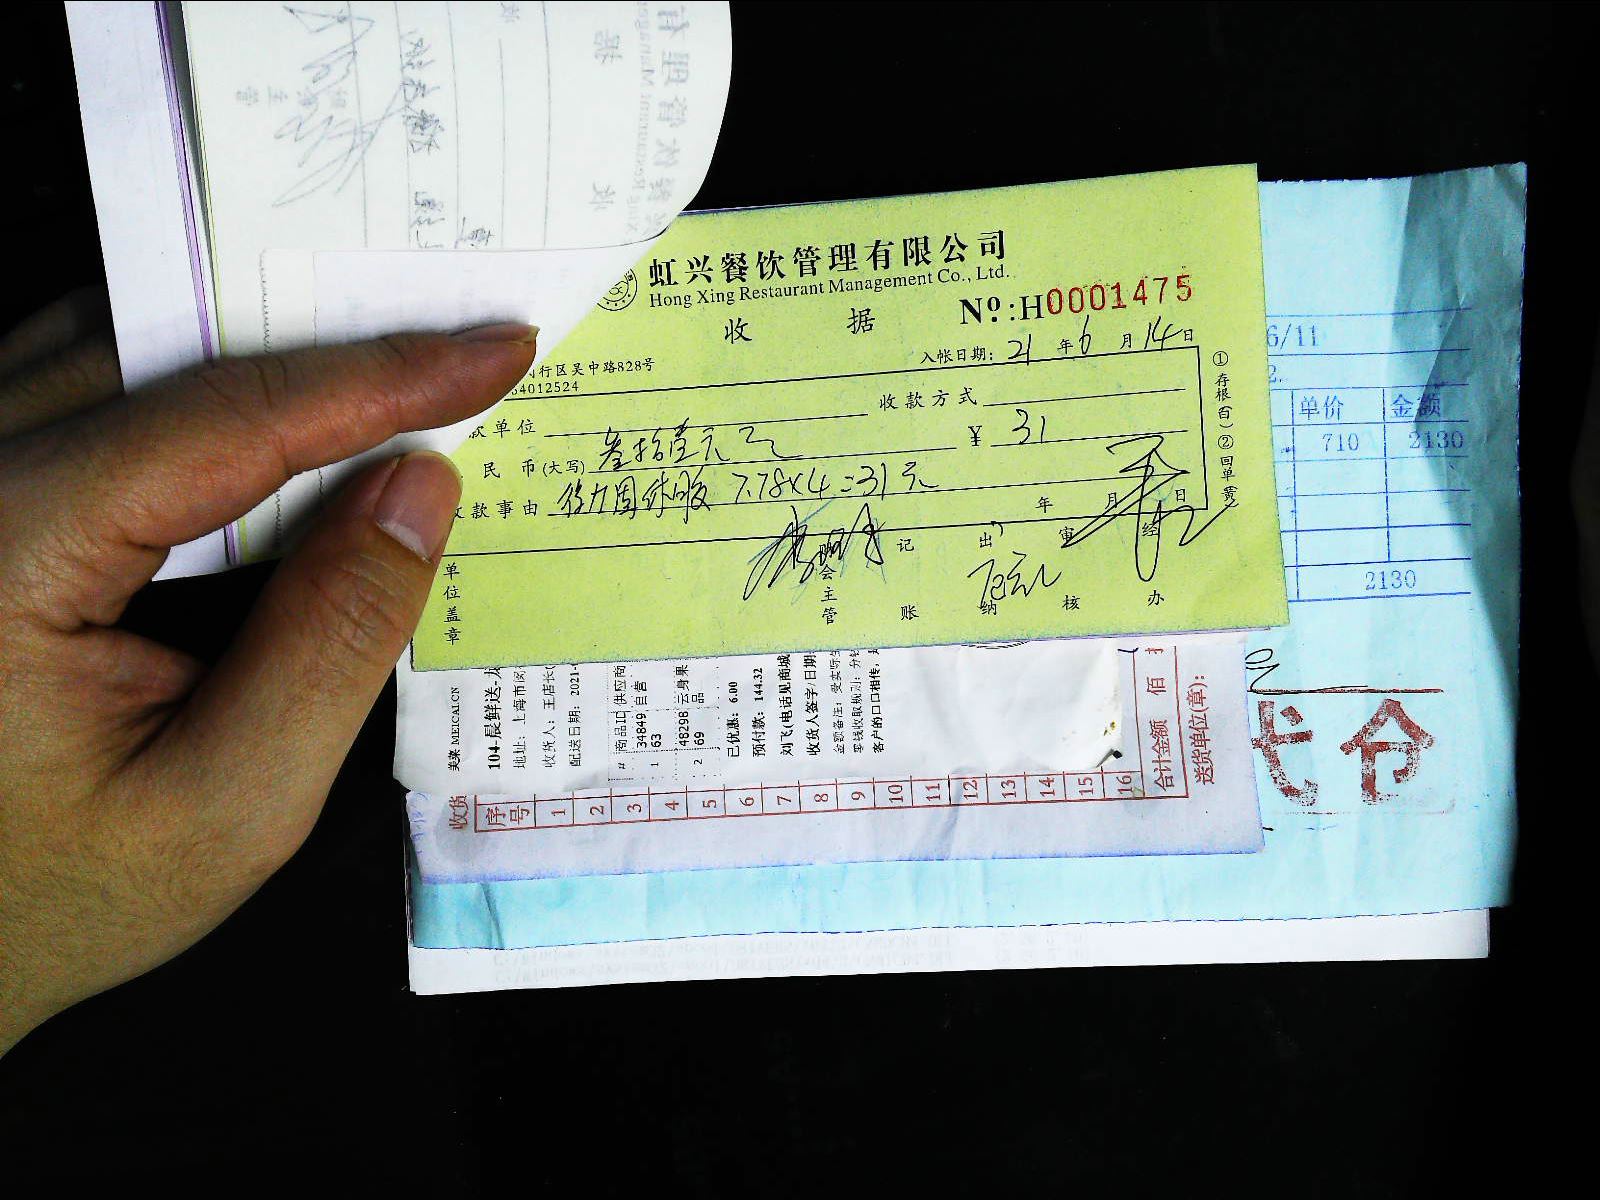 虹兴餐饮管理有限公司
Hong Xing Restaurant Management Co., Ltd.
收 据
No:H0001475
行区吴中路828号
64012524
入帐日期: 21 年 6 月 14 日
款单位
收款方式
民 币(大写) 叁拾壹元正
¥ 31
款事由 得力固体胶 7.78×4=31元
年 月 日
①存根(白)②回单(黄)
单位盖章
会主管
记账
出纳
审核
经办
6/11
2.
单价 金额
710 2130
2130
美菜 MEICAI.CN
104-晨鲜送-龙
地址: 上海市闵
收货人: 王店长(
配送日期: 2021-
# 商品ID 供应商
1 34849 自营
63
2 48298 云身果品
69
已优惠: 6.00
预付款: 144.32
刘飞(电话见商城
收货人签字/日期:
金额备注: 受实际
零钱收取规则: 分
客户的口口相传,
收货
序号
1
2
3
4
5
6
7
8
9
10
11
12
13
14
15
16
合计金额 佰
送货单位(章):
仓